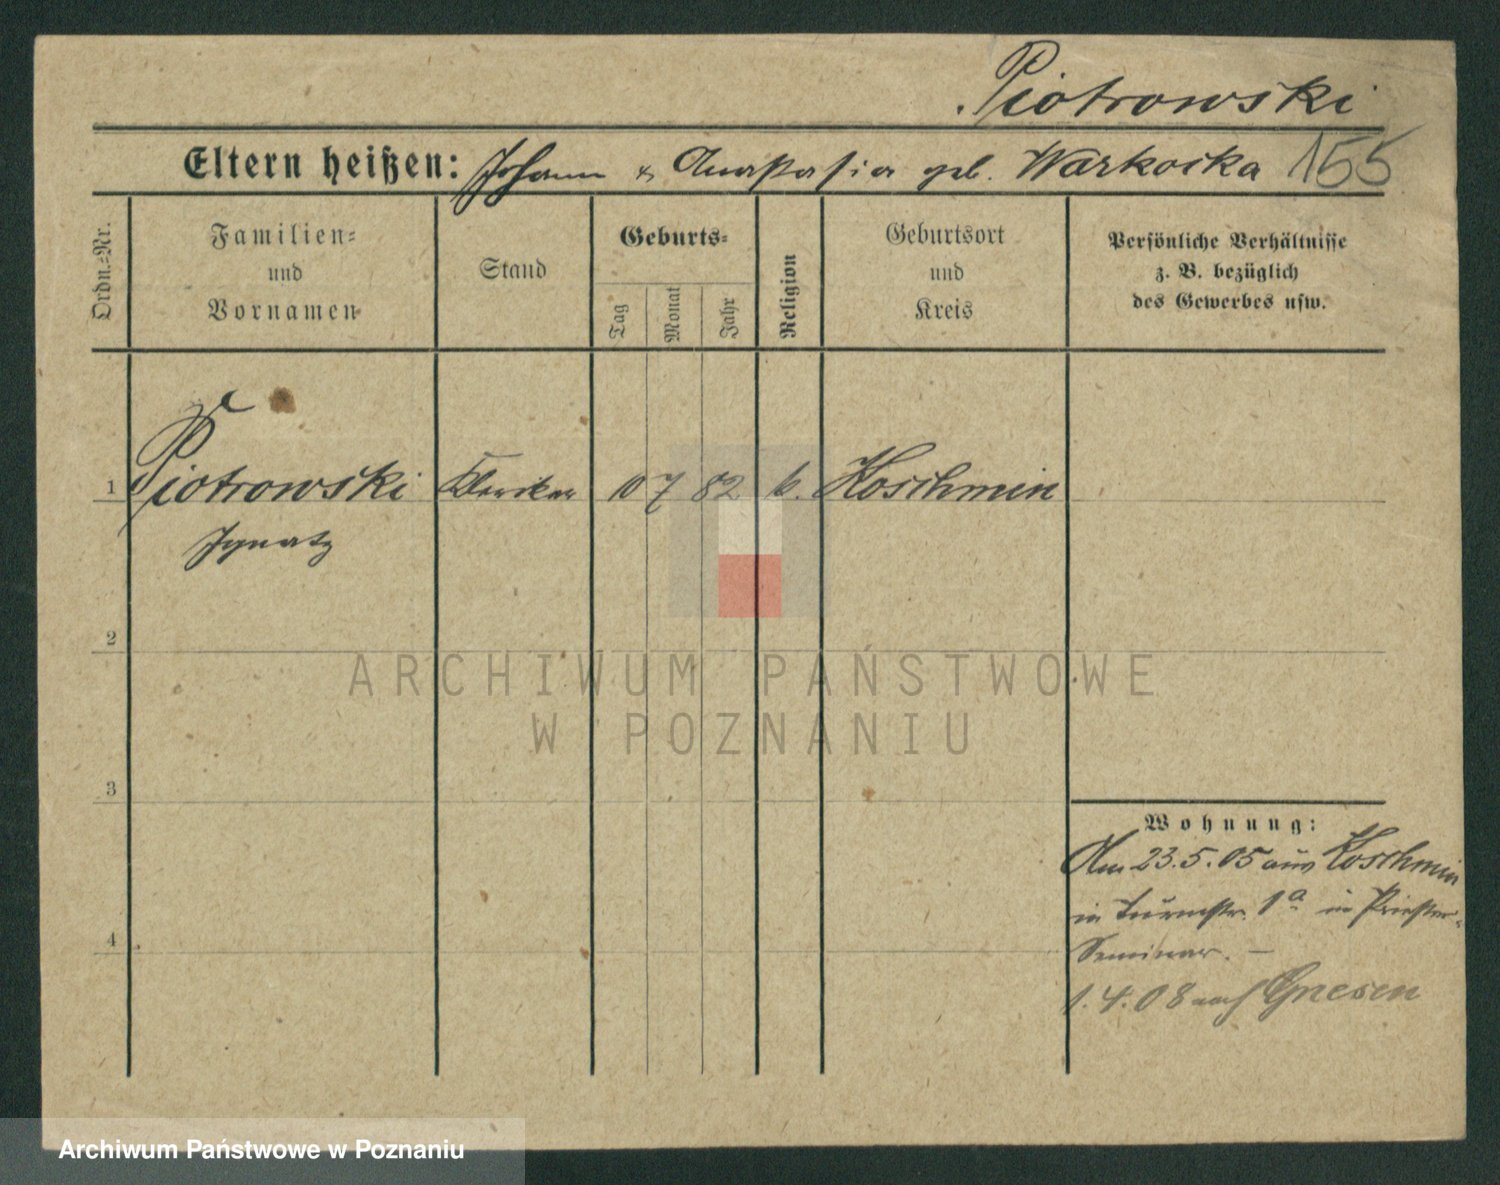 Piotrowski
Eltern heißen: Johann & Anastasia geb. Warkocka 155
Ordn.-Nr.
Familien-
und
Vornamen
Stand
Geburts-
Tag
Monat
Jahr
Religion
Geburtsort
und
Kreis
Persönliche Verhältnisse
z. B. bezüglich
des Gewerbes usw.
1 Piotrowski Kleriker 10 7 82 k. Koschmin
Ignatz
2
3
4
Wohnung:
Am 23.5.05 aus Koschmin
in Turmstr. 1a in Priester-
Seminar. —
1.4.08 nach Gnesen
ARCHIWUM PAŃSTWOWE
W POZNANIU
Archiwum Państwowe w Poznaniu